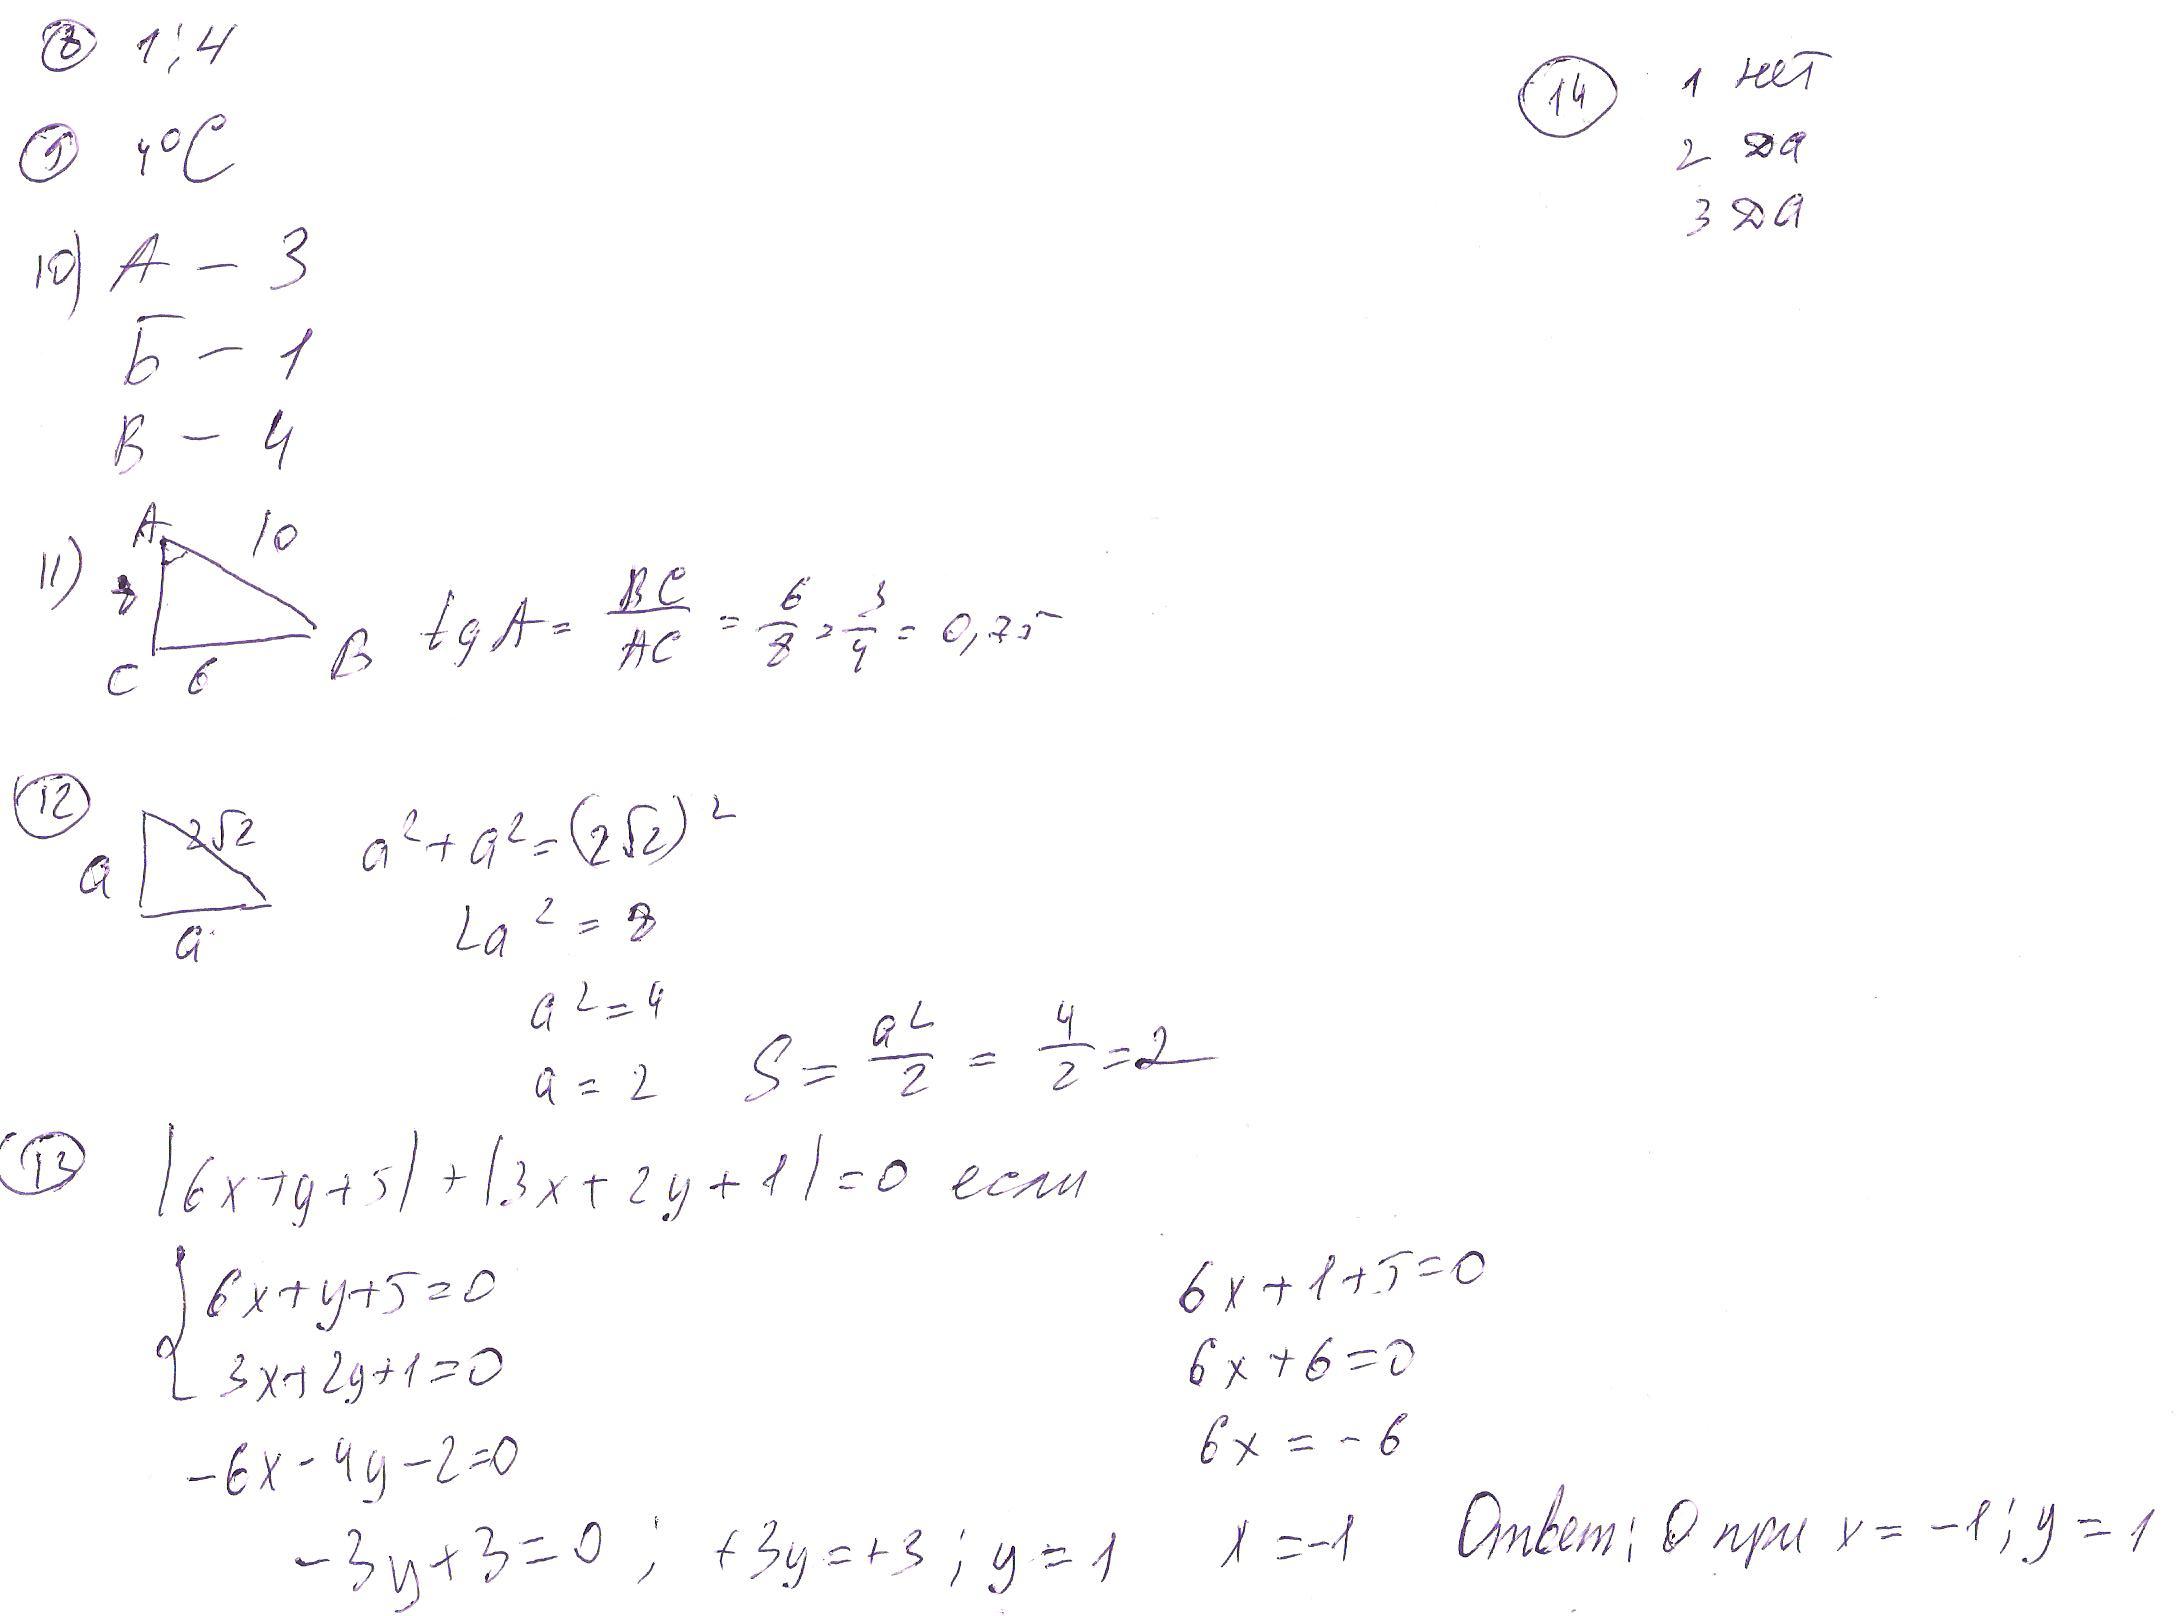 8 1; 4
9 4°C
10) А – 3
Б – 1
В – 4
11) A 10 8 C 6 B tg A = BC/AC = 6/8 = 3/4 = 0,75
12 a 2√2 a
a² + a² = (2√2)²
2a² = 8
a² = 4
a = 2 S = a²/2 = 4/2 = 2
13 |6x+y+5| + |3x+2y+1| = 0 если
{ 6x+y+5=0
3x+2y+1=0
-6x-4y-2=0
-3y+3=0; +3y=+3; y=1
6x+1+5=0
6x+6=0
6x=-6
x=-1 Ответ: 0 при x=-1; y=1
14 1 нет
2 да
3 да